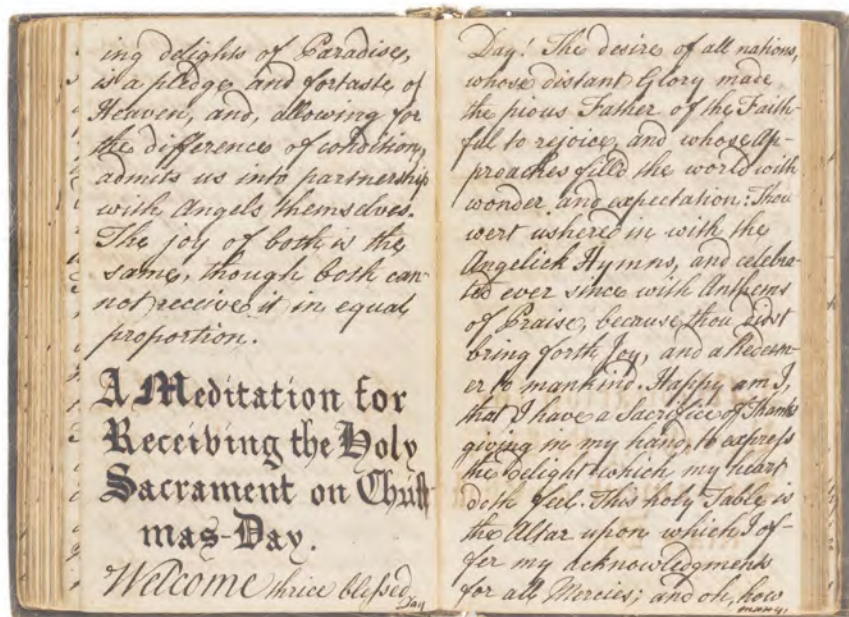 ing delights of Paradise,
is a pledge and fortaste of
Heaven, and, allowing for
the difference of condition,
admits us into partnership
with Angels themselves.
The joy of both is the
same, though both can-
not receive it in equal
proportion.
A Meditation for
Receiving the Holy
Sacrament on Christ-
mas-Day.
Welcome thrice blessed
Day
Day! The desire of all nations,
whose distant Glory made
the pious Father of the Faith-
ful to rejoice, and whose Ap-
proaches filld the world with
wonder and expectation: Thou
wert ushered in with the
Angelick Hymns, and celebra-
ted ever since with Anthems
of Praise, because thou didst
bring forth Joy, and a Redeem-
er to mankind. Happy am I,
that I have a Sacrifice of Thanks
giving in my hand, to express
the delight which my heart
doth feel. This holy Table is
the Altar upon which I of-
fer my acknowledgments
for all Mercies; and oh, how
many,